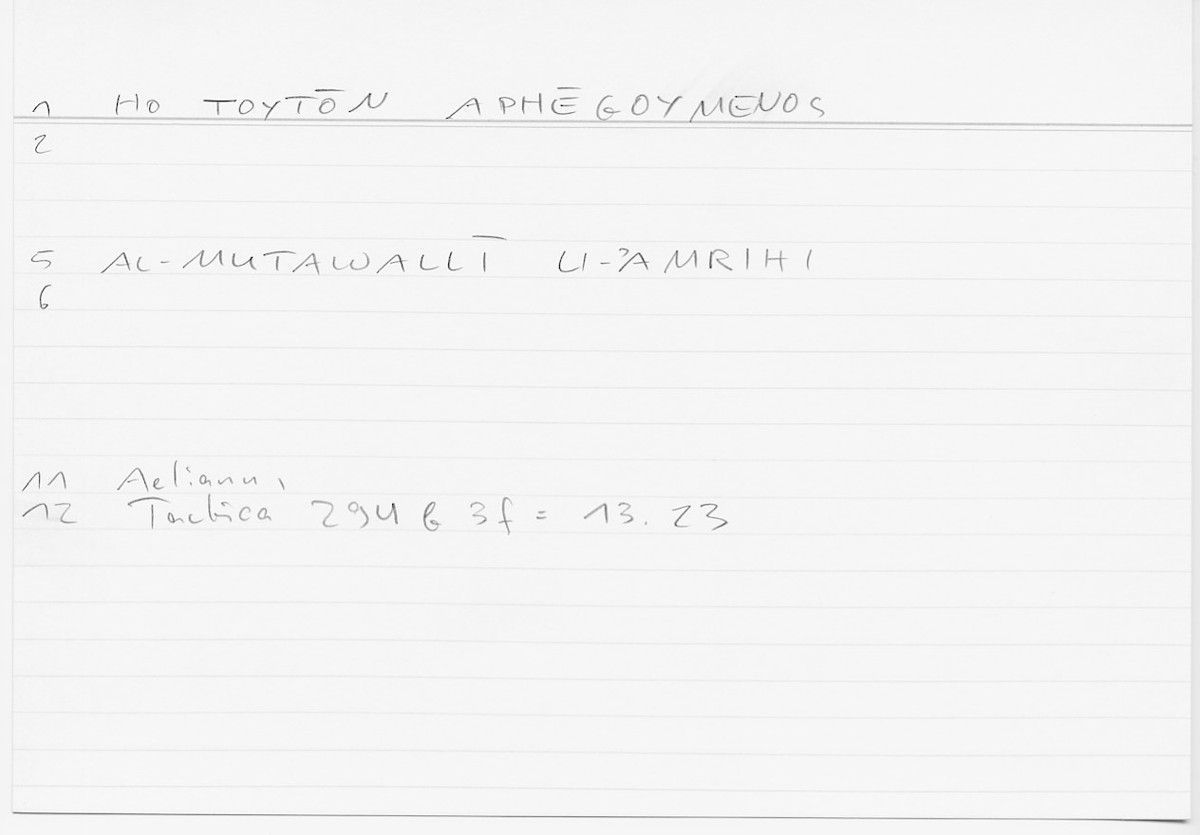 1 HO TOYTŌN APHĒGOYMENOS
2
5 AL-MUTAWALLĪ LI-ʾAMRIHI
6
11 Aelianus,
12 Tactica 294 b 3f = 13. 23